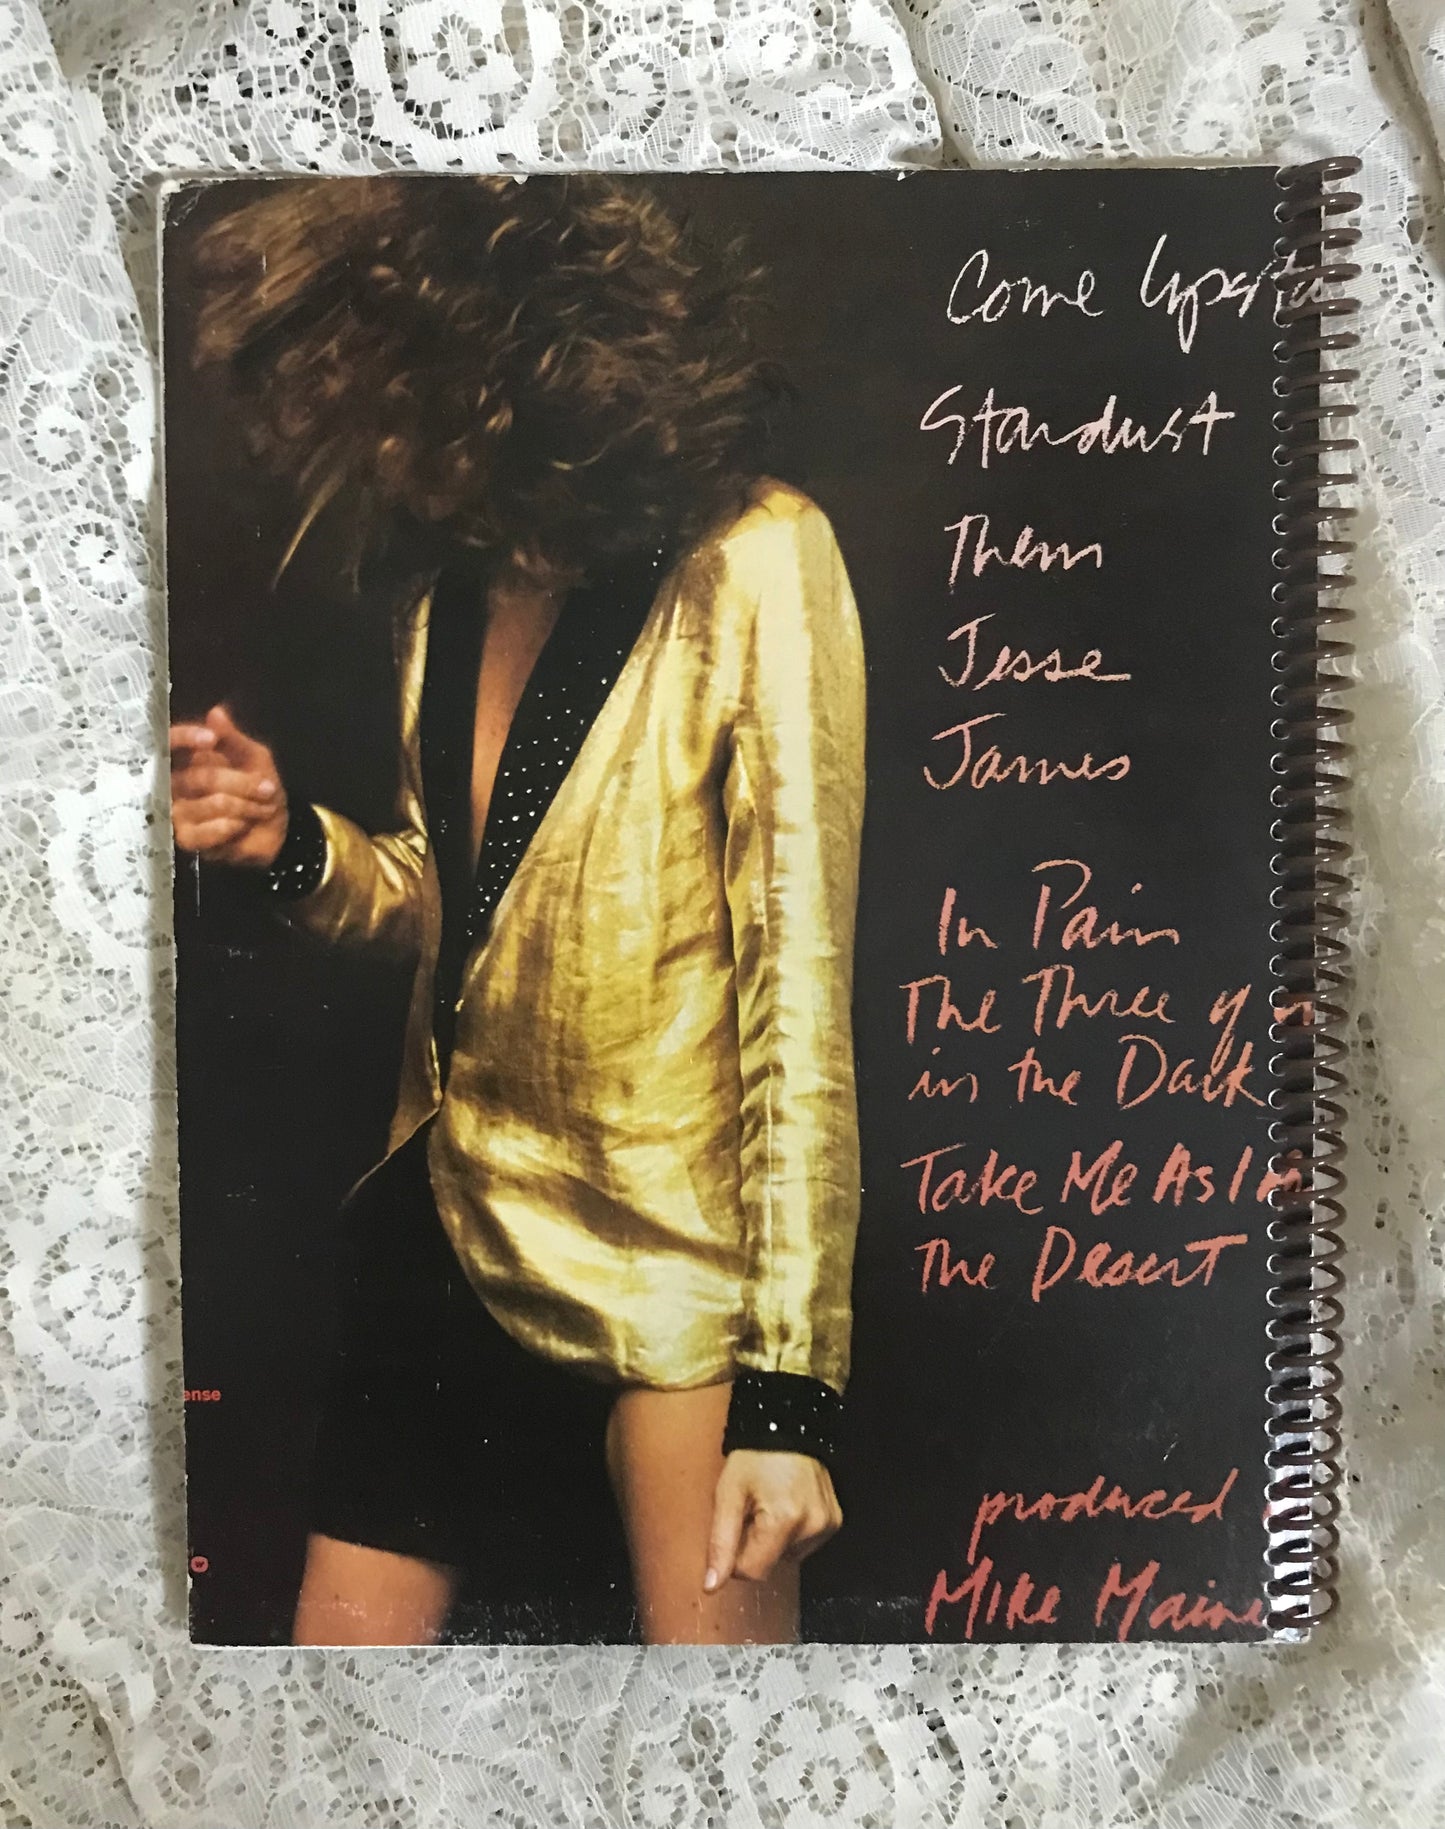 Come Upsta
Stardust
Them
Jesse
James
In Pain
The Three of
in the Dark
Take Me As I
The Desert
ense
W
produced
Mike Maine